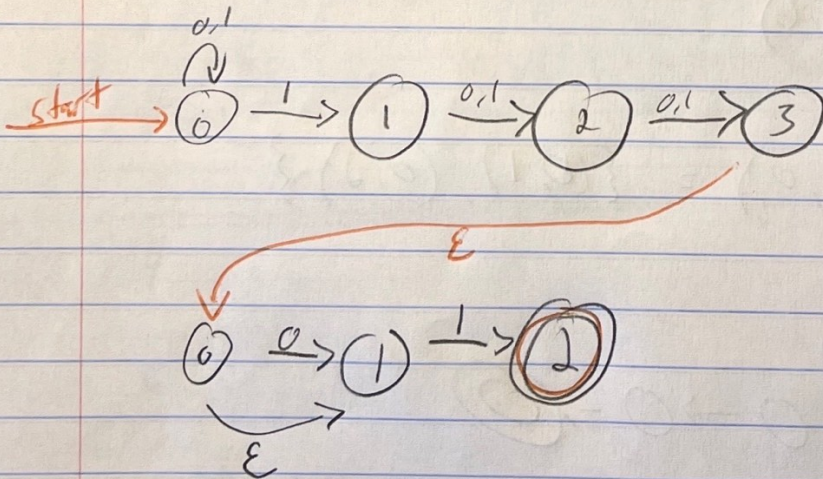 0,1
start 0 1 1 0,1 2 0,1 3
ε
0 0 1 1 2
ε